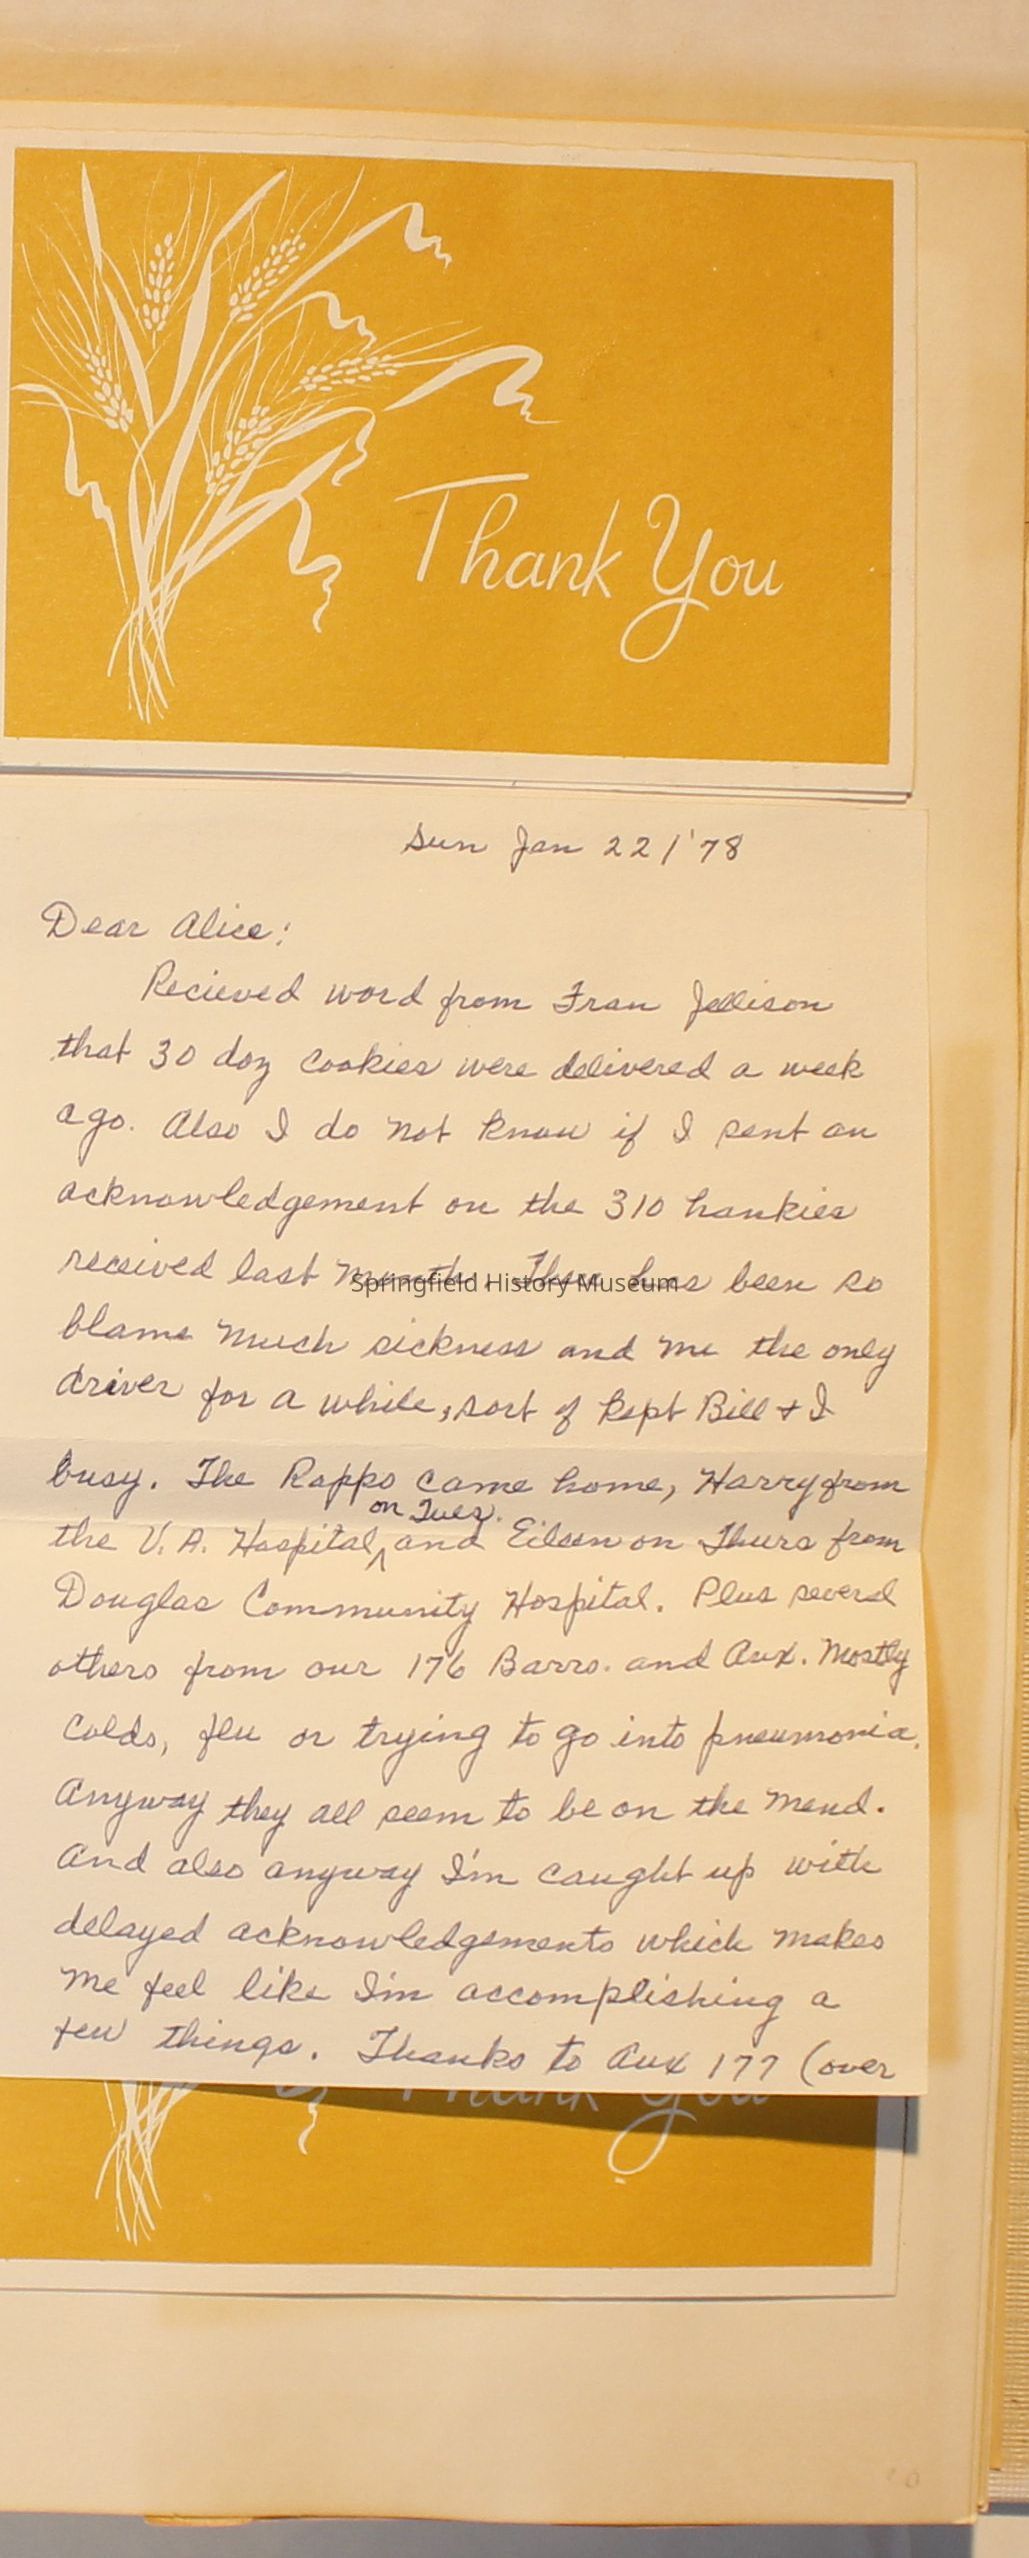 Thank You
Sun Jan 22/'78
Dear Alice:
Recieved word from Fran Jellison
that 30 doz cookies were delivered a week
ago. Also I do not know if I sent an
acknowledgement on the 310 hankies
received last month. There has been so
Springfield History Museum
blame much sickness and me the only
driver for a while, sort of kept Bill & I
busy. The Rapps came home, Harry from
on Tues.
the V.A. Hospital, and Eileen on Thurs from
Douglas Community Hospital. Plus several
others from our 176 Barrs. and Aux. Mostly
Colds, flu or trying to go into pneumonia.
Anyway they all seem to be on the mend.
And also anyway I'm caught up with
delayed acknowledgements which makes
me feel like I'm accomplishing a
few things. Thanks to Aux 177 (over
Thank You